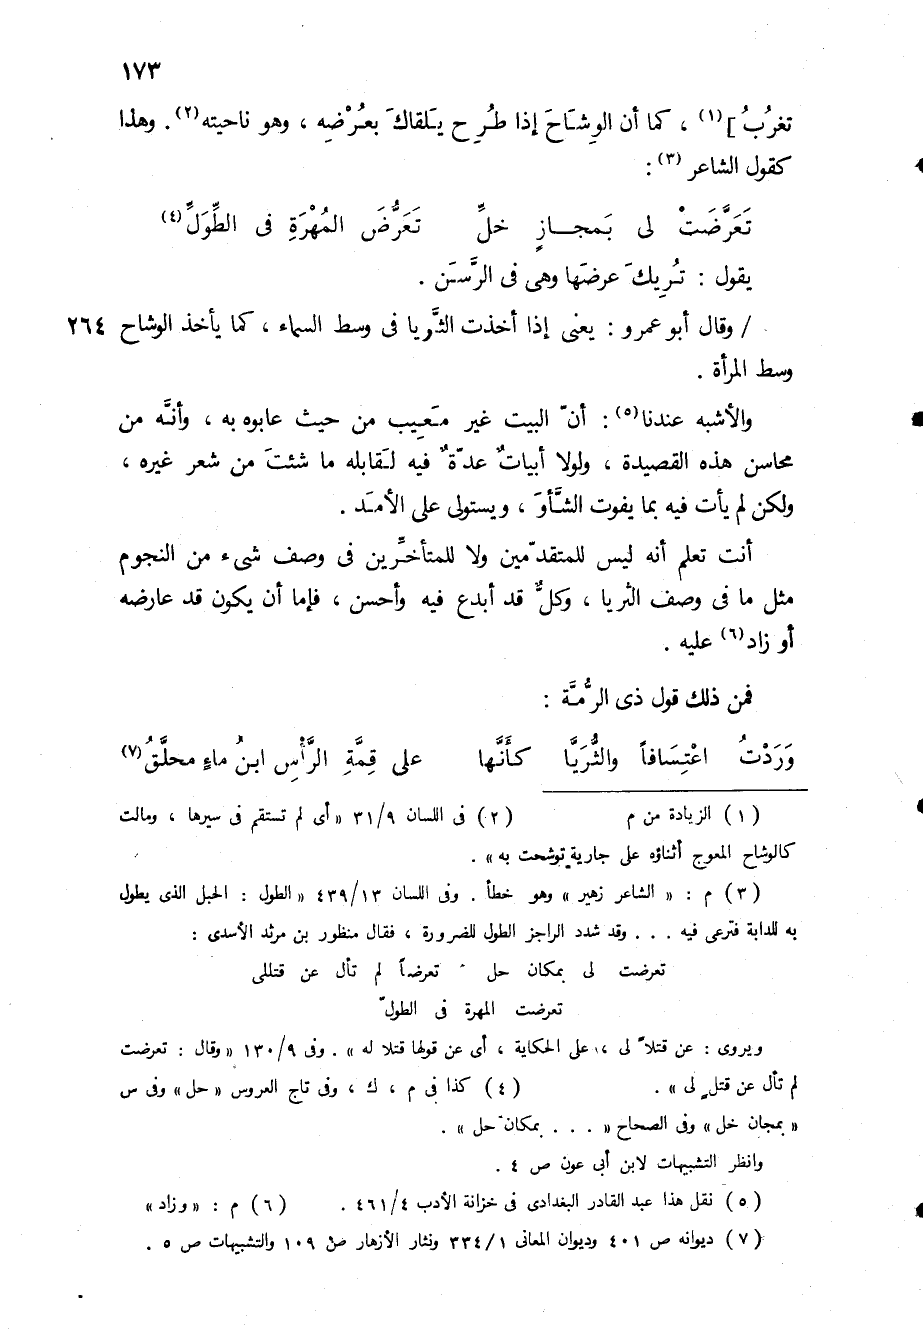 ١٧٣
تغرُبُ ](١) ، كما أن الوِشَاحَ إذا طُرِح يَلقاكَ بعُرْضِه ، وهو ناحيته(٢). وهذا
كقول الشاعر (٣) :
تَعَرَّضَتْ لى بَمجازٍ خلِّ تَعَرُّضَ المُهْرَةِ فى الطِّوَلِّ(٤)
يقول : تُرِيكَ عرضَها وهى فى الرَّسَن .
/ وقال أبو عمرو : يعنى إذا أخذت الثَّريا فى وسط السماء ، كما يأخذ الوشاح ٢٦٤
وسط المرأة .
والأشبه عندنا(٥) : أنّ البيت غير مَعِيب من حيث عابوه به ، وأنَّه من
محاسن هذه القصيدة ، ولولا أبياتٌ عدّةٌ فيه لَقابله ما شئتَ من شعر غيره ،
ولكن لم يأت فيه بما يفوت الشَّأوَ ، ويستولى على الأمَد .
أنت تعلم أنه ليس للمتقدّمين ولا للمتأخرِّين فى وصف شىء من النجوم
مثل ما فى وصف الثريا ، وكلٌّ قد أبدع فيه وأحسن ، فإما أن يكون قد عارضه
أو زاد(٦) عليه .
فمن ذلك قول ذى الرُّمَّة :
وَرَدْتُ اعْتِسَافاً والثُّرَيَّا كأَنَّها على قِمَّةِ الرَّأْسِ ابنُ ماءٍ محلَّقُ(٧)
(١) الزيادة من م (٢) فى اللسان ٣١/٩ « أى لم تستقم فى سيرها ، ومالت
كالوشاح المعوج أثناؤه على جارية توشحت به » .
(٣) م : « الشاعر زهير » وهو خطأ . وفى اللسان ٤٣٩/١٣ « الطول : الحبل الذى يطول
به للدابة فترعى فيه . . . وقد شدد الراجز الطول للضرورة ، فقال منظور بن مرثد الأسدى :
تعرضت لى بمكان حل تعرضاً لم تأل عن قتللى
تعرضت المهرة فى الطولّ
ويروى : عن قتلاً لى ، على الحكاية ، أى عن قولها قتلا له » . وفى ١٣٠/٩ « وقال : تعرضت
لم تأل عن قتلٍ لى » . (٤) كذا فى م ، ك ، وفى تاج العروس « حل » وفى س
« بمجان خل » وفى الصحاح « . . . بمكان حل » .
وانظر التشبيهات لابن أبى عون ص ٤ .
(٥) نقل هذا عبد القادر البغدادى فى خزانة الأدب ٤٦١/٤ . (٦) م : « وزاد »
(٧) ديوانه ص ٤٠١ وديوان المعانى ٣٣٤/١ ونثار الأزهار ص ١٠٩ والتشبيهات ص ٥ .